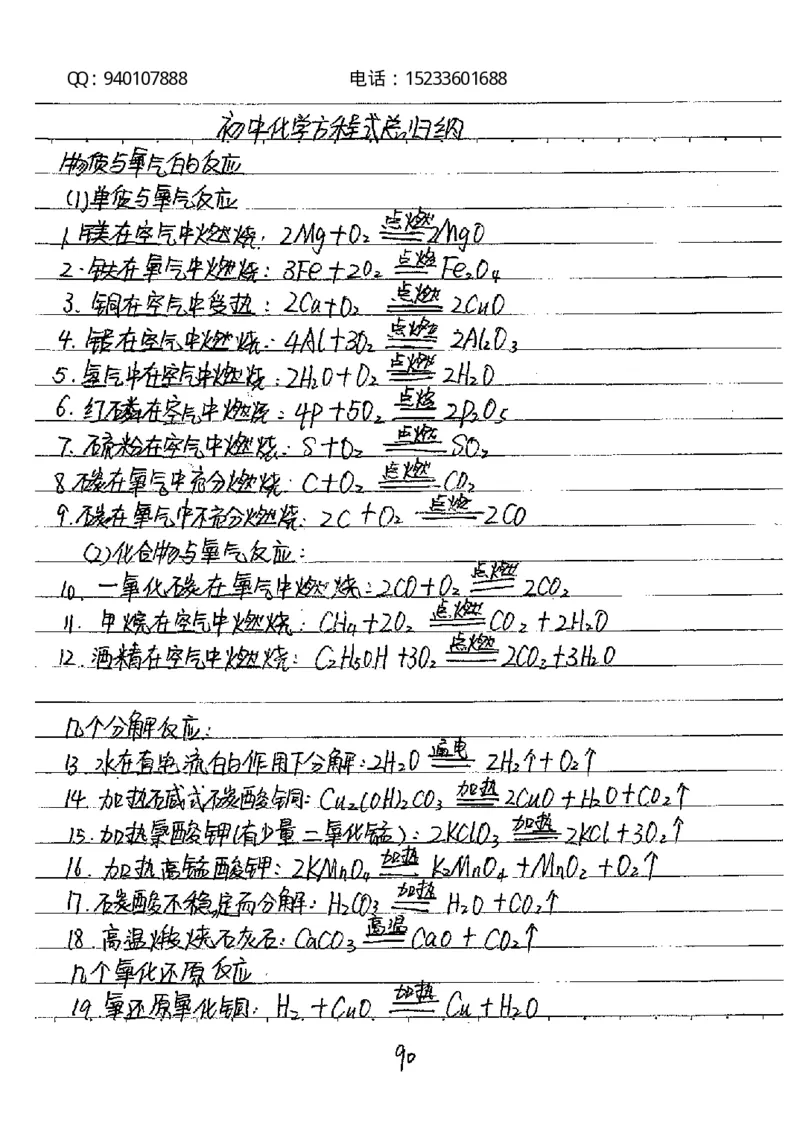 QQ：940107888 电话：15233601688
初中化学方程式总归纳
物质与氧气的反应
(1)单质与氧气反应
1.镁在空气中燃烧：2Mg+O₂ 点燃 2MgO
2.铁在氧气中燃烧：3Fe+2O₂ 点燃 Fe₃O₄
3.铜在空气中受热：2Cu+O₂ 点燃 2CuO
4.铝在空气中燃烧：4Al+3O₂ 点燃 2Al₂O₃
5.氢气中在空气中燃烧：2H₂O+O₂ 点燃 2H₂O
6.红磷在空气中燃烧：4P+5O₂ 点燃 2P₂O₅
7.硫粉在空气中燃烧：S+O₂ 点燃 SO₂
8.碳在氧气中充分燃烧：C+O₂ 点燃 CO₂
9.碳在氧气中不充分燃烧：2C+O₂ 点燃 2CO
(2)化合物与氧气反应：
10、一氧化碳在氧气中燃烧：2CO+O₂ 点燃 2CO₂
11.甲烷在空气中燃烧：CH₄+2O₂ 点燃 CO₂+2H₂O
12.酒精在空气中燃烧：C₂H₅OH+3O₂ 点燃 2CO₂+3H₂O
几个分解反应：
13.水在直电流的作用下分解：2H₂O 通电 2H₂↑+O₂↑
14.加热碱式碳酸铜：Cu₂(OH)₂CO₃ 加热 2CuO+H₂O+CO₂↑
15.加热氯酸钾(有少量二氧化锰)：2KClO₃ 加热 2KCl+3O₂↑
16.加热高锰酸钾：2KMnO₄ 加热 K₂MnO₄+MnO₂+O₂↑
17.碳酸不稳定而分解：H₂CO₃ 加热 H₂O+CO₂↑
18.高温煅烧石灰石：CaCO₃ 高温 CaO+CO₂↑
几个氧化还原反应
19.氢还原氧化铜：H₂+CuO 加热 Cu+H₂O
90